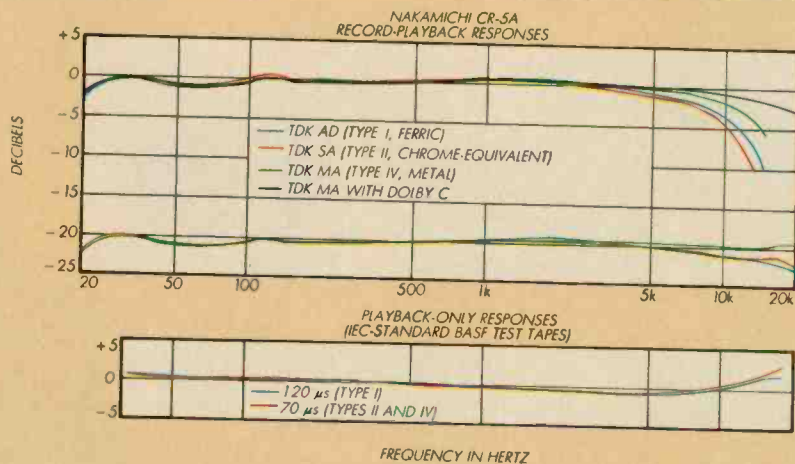 NAKAMICHI CR-5A
RECORD-PLAYBACK RESPONSES
+5
0
-5
-10
-15
-20
-25
DECIBELS
TDK AD (TYPE I, FERRIC)
TDK SA (TYPE II, CHROME-EQUIVALENT)
TDK MA (TYPE IV, METAL)
TDK MA WITH DOLBY C
20 50 100 500 1k 5k 10k 20k
PLAYBACK-ONLY RESPONSES
(IEC-STANDARD BASF TEST TAPES)
+5
0
-5
120 µs (TYPE I)
70 µs (TYPES II AND IV)
FREQUENCY IN HERTZ